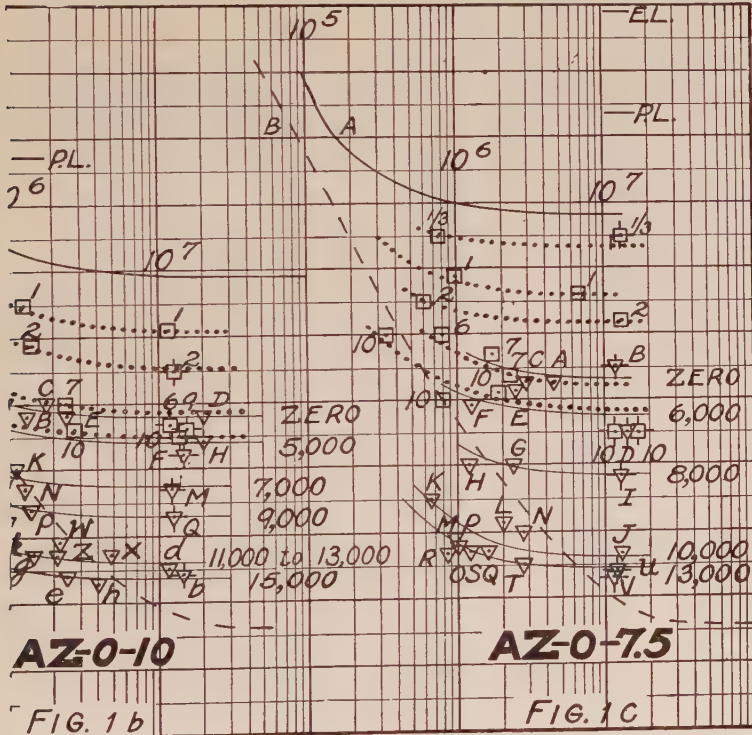 10 5
EL.
B A
P.L.
P.L.
10 6
10 7
1/3
1/3
10 7
1
1
1
1
2
2
2
2
10
6
7
7 C A
B
ZERO
10
C 7
6 9 D
ZERO
10
F
E
6,000
B E
10
10
F H
5,000
10 D 10
K
H
G
8,000
I
N
M
7,000
K
P
Q
9,000
M P
L
N
J
W
Z X
d
11,000 to 13,000
R
O S Q
T
10,000
U
g
e h
b
15,000
V
13,000
AZ-0-10
AZ-0-7.5
FIG. 1 b
FIG. 1 C